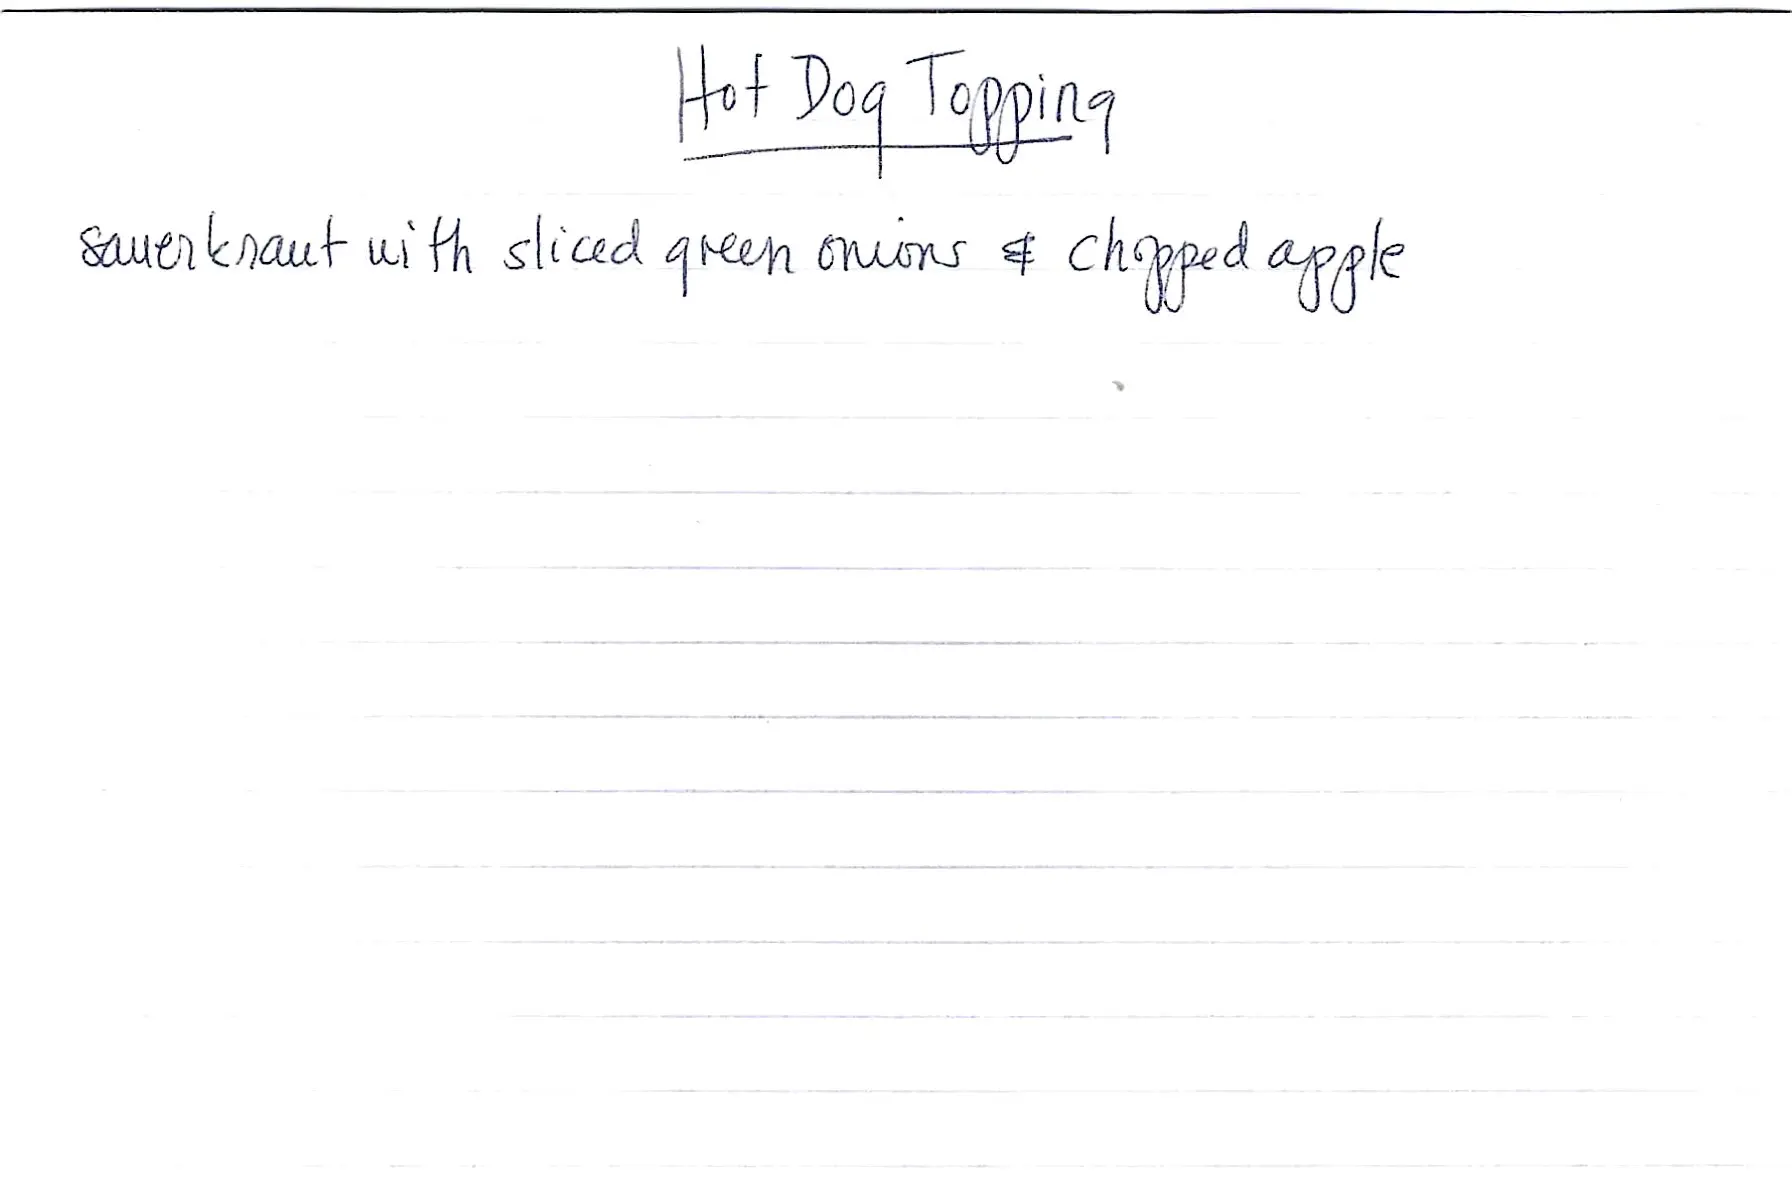 Hot Dog Topping
sauerkraut with sliced green onions & chopped apple